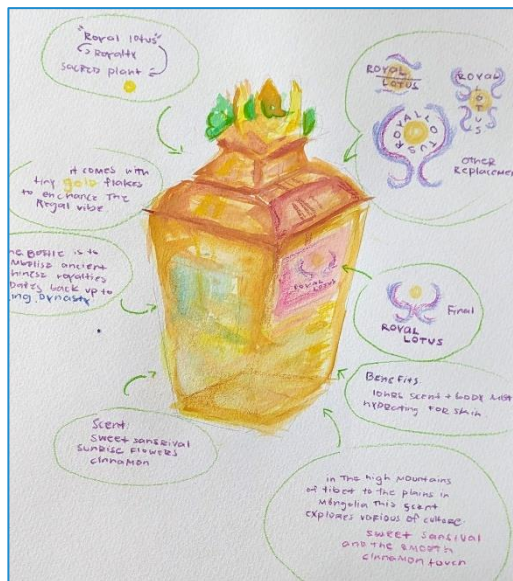 "Royal lotus"
Royalty
sacred plant
ROYAL
LOTUS
ROYAL
LOTUS
ROYAL LOTUS
other
Replacement
it comes with
tiny gold flakes
to enchance the
Regal vibe.
Bottle is to
ancient
royalties
back up to
Dynasty
ROYAL LOTUS
Final
ROYAL
LOTUS
Benefits
scent + body mist
hydrating for skin
Scent:
sweet sansrival
sunrise flowers
cinnamon
in the high mountains
of tibet to the plains in
Mongolia this scent
explores various of culture
sweet sansival
and the smooth
cinnamon touch